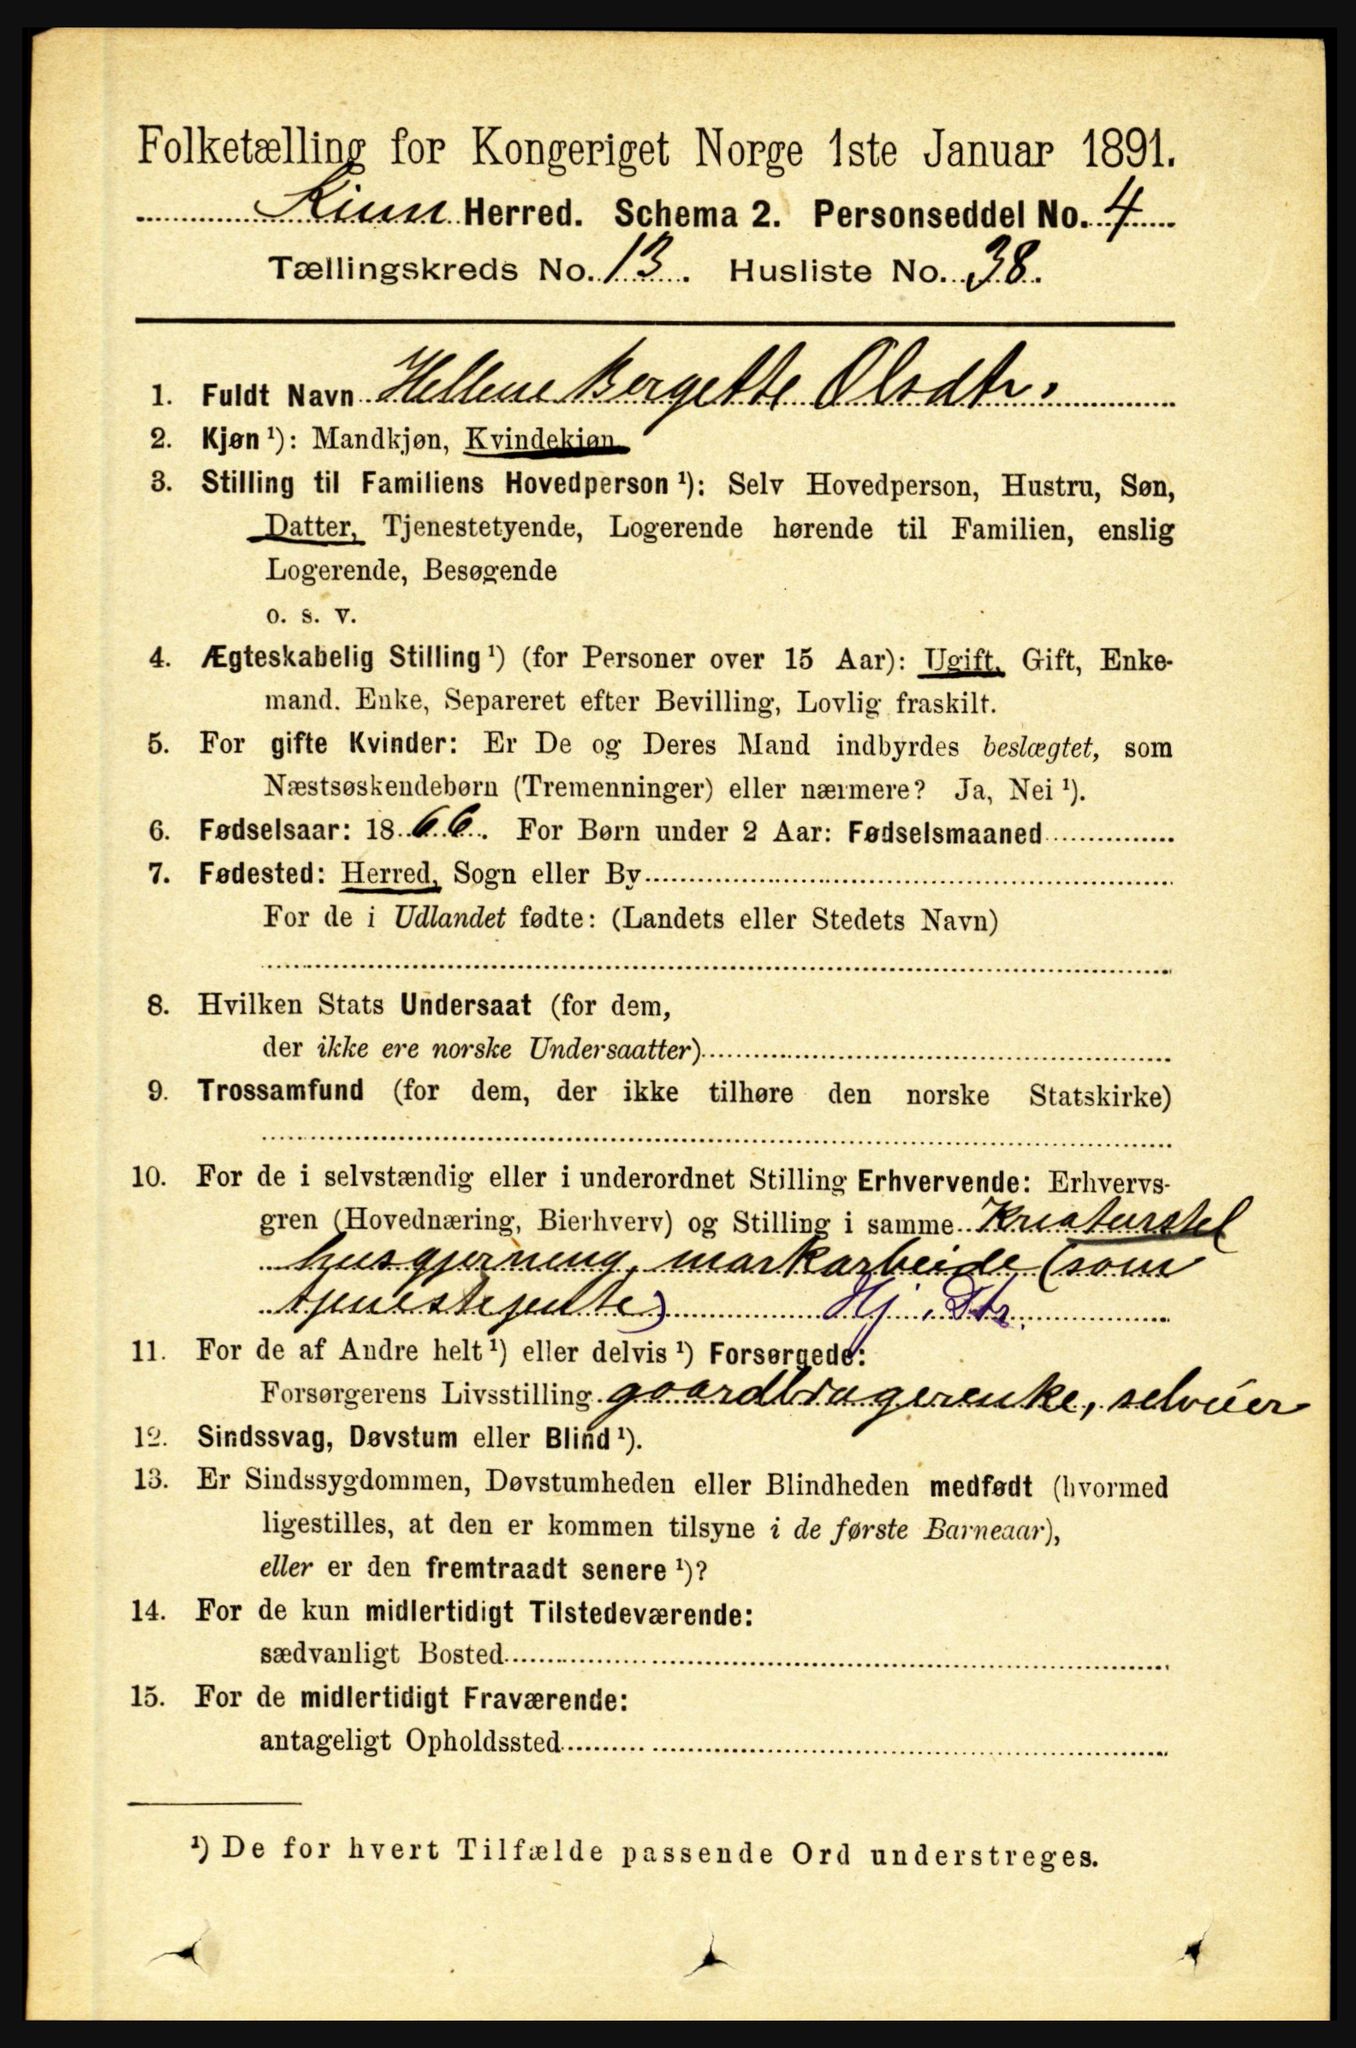 Folketælling for Kongeriget Norge 1ste Januar 1891.
Kinn Herred. Schema 2. Personseddel No. 4
Tællingskreds No. 13. Husliste No. 38.
1. Fuldt Navn Hellene Bergette Olsdtr.
2. Kjøn ¹): Mandkjøn, Kvindekjøn
3. Stilling til Familiens Hovedperson ¹): Selv Hovedperson, Hustru, Søn,
Datter, Tjenestetyende, Logerende hørende til Familien, enslig
Logerende, Besøgende
o. s. v.
4. Ægteskabelig Stilling ¹) (for Personer over 15 Aar): Ugift, Gift, Enke-
mand. Enke, Separeret efter Bevilling, Lovlig fraskilt.
5. For gifte Kvinder: Er De og Deres Mand indbyrdes beslægtet, som
Næstsøskendebørn (Tremenninger) eller nærmere? Ja, Nei ¹).
6. Fødselsaar: 1866. For Børn under 2 Aar: Fødselsmaaned
7. Fødested: Herred, Sogn eller By
For de i Udlandet fødte: (Landets eller Stedets Navn)
8. Hvilken Stats Undersaat (for dem,
der ikke ere norske Undersaatter)
9. Trossamfund (for dem, der ikke tilhøre den norske Statskirke)
10. For de i selvstændig eller i underordnet Stilling Erhvervende: Erhvervs-
gren (Hovednæring, Bierhverv) og Stilling i samme Kreaturstel
husgjerning, markarbeide (som
tjenestejente) Hj. Dtr.
11. For de af Andre helt ¹) eller delvis ¹) Forsørgede:
Forsørgerens Livsstilling gaardbrugerenke, selveier
12. Sindssvag, Døvstum eller Blind ¹).
13. Er Sindssygdommen, Døvstumheden eller Blindheden medfødt (hvormed
ligestilles, at den er kommen tilsyne i de første Barneaar),
eller er den fremtraadt senere ¹)?
14. For de kun midlertidigt Tilstedeværende:
sædvanligt Bosted
15. For de midlertidigt Fraværende:
antageligt Opholdssted
¹) De for hvert Tilfælde passende Ord understreges.